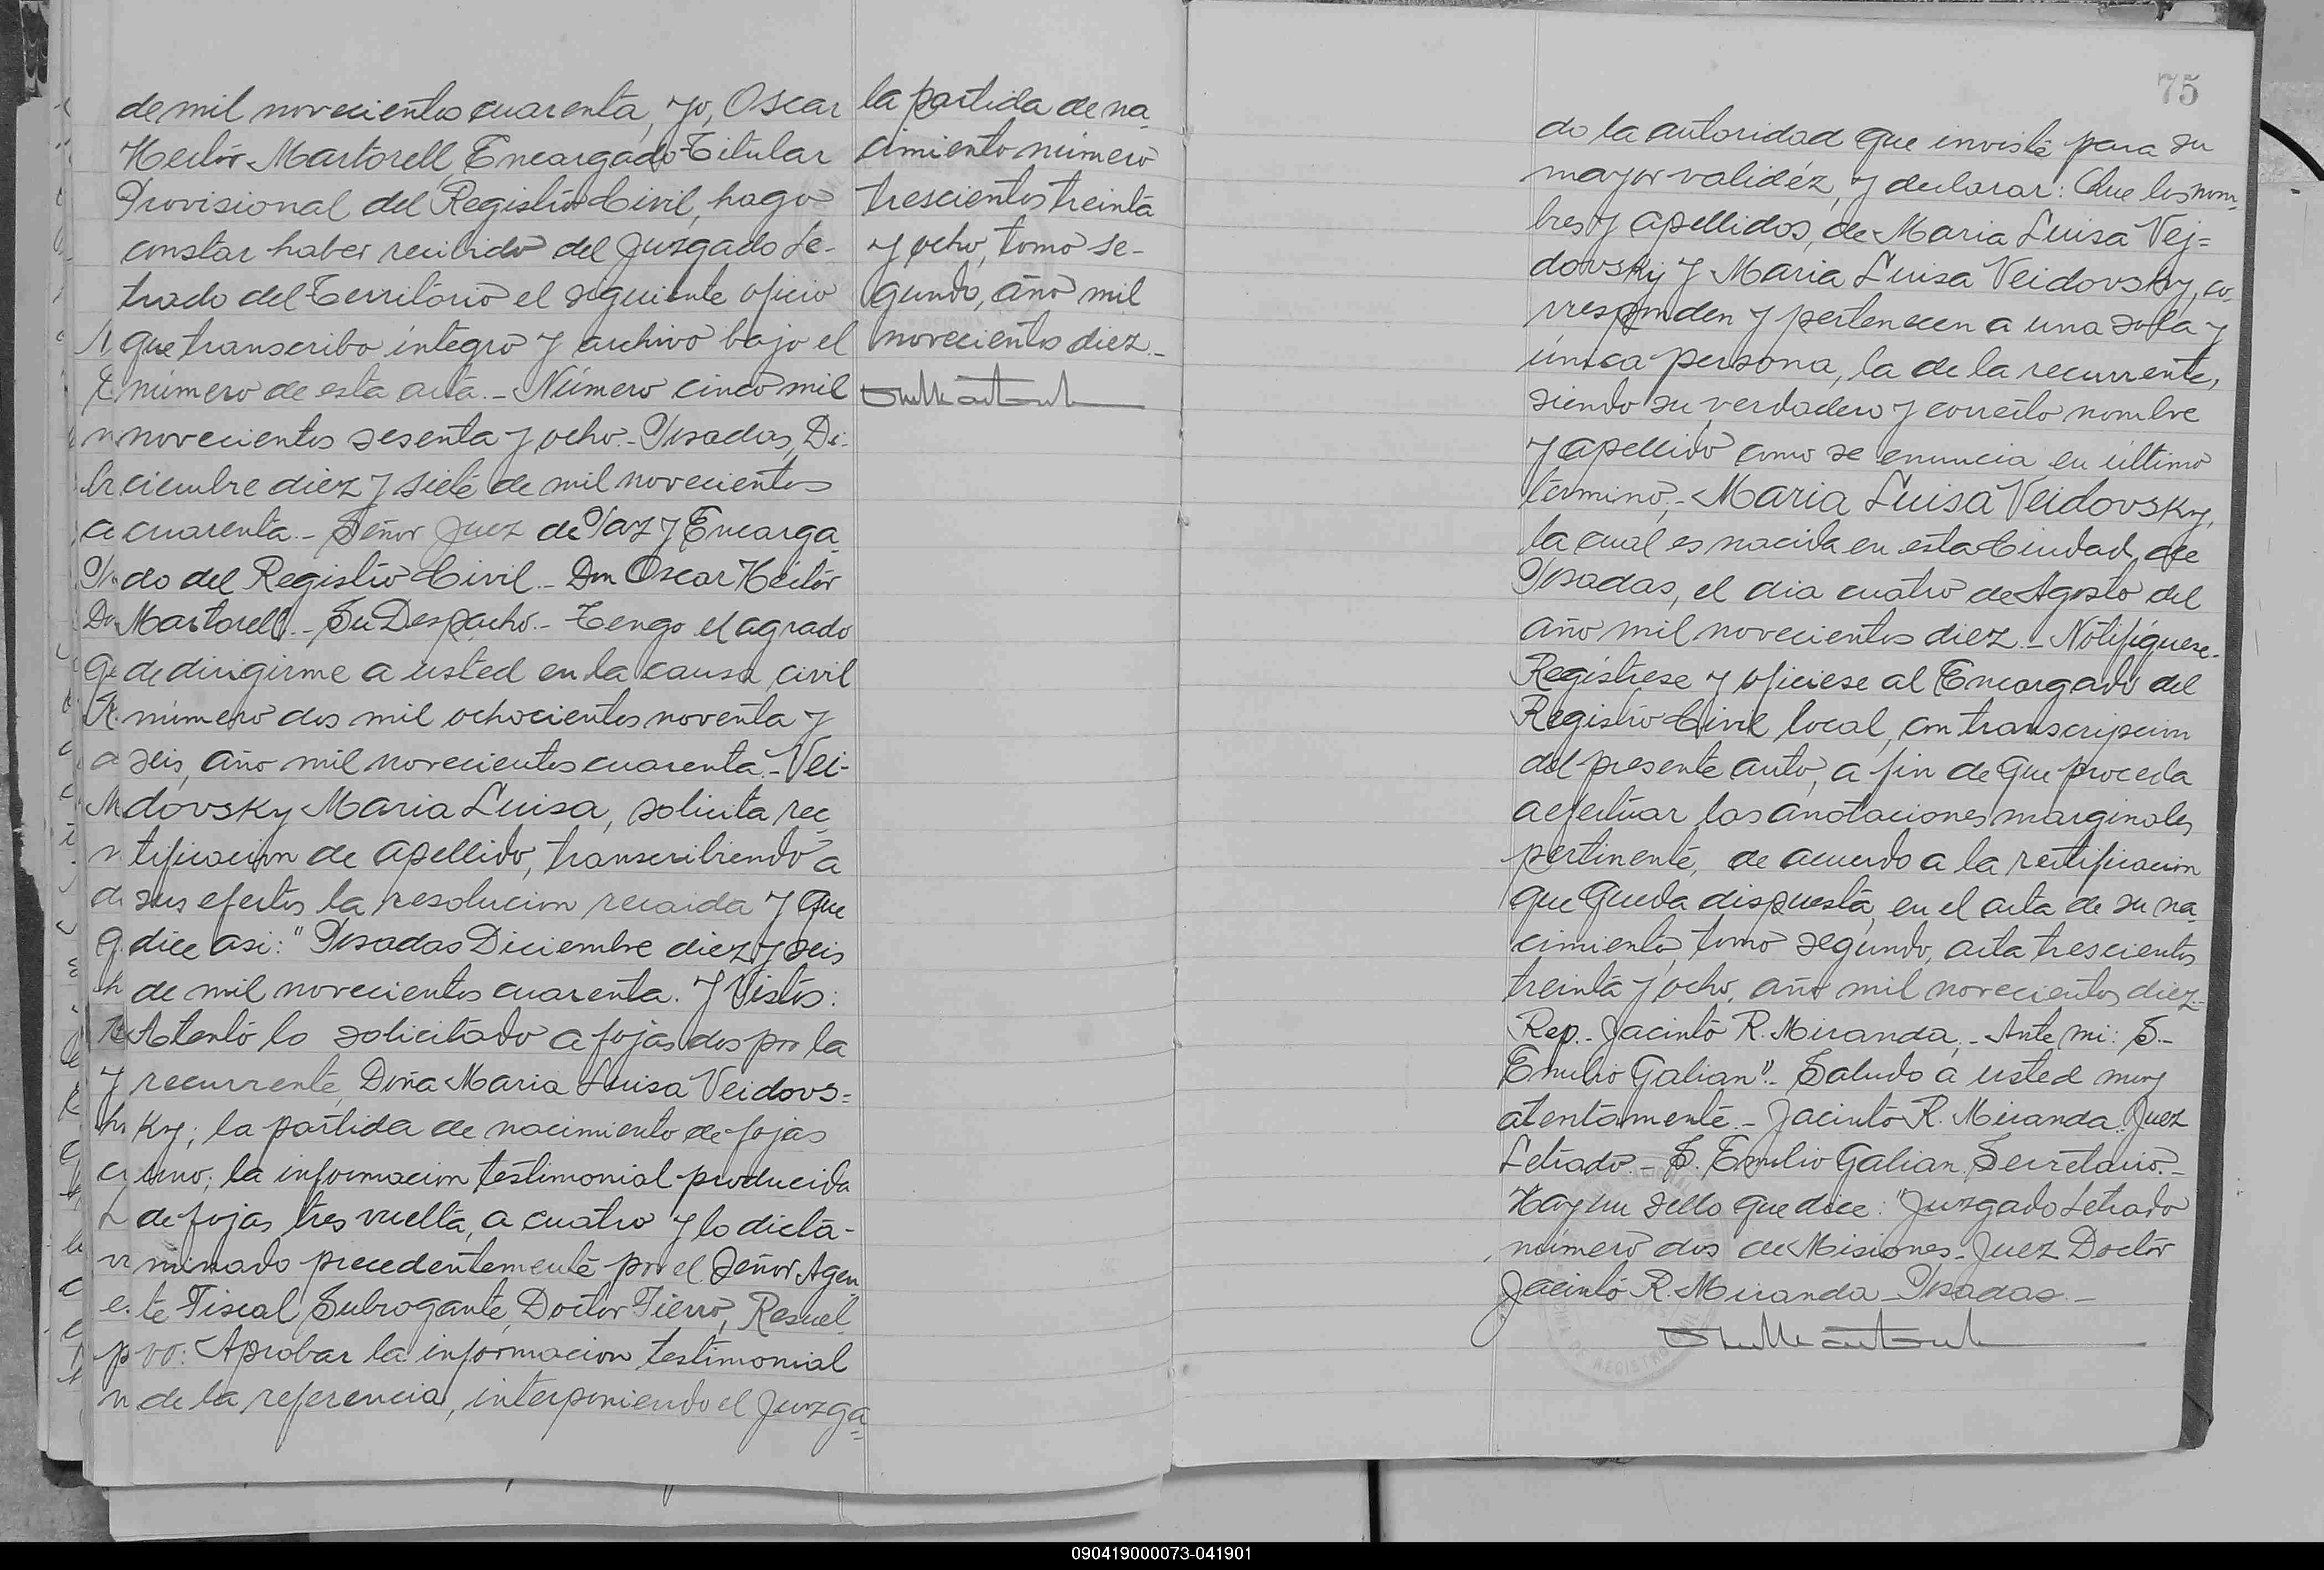 de mil novecientos cuarenta, yo, Oscar
Hector Martorell, Encargado Titular
Provisional del Registro Civil, hago
constar haber recibido del Juzgado Le-
trado del Territorio el siguiente oficio
que transcribo íntegro y archivo bajo el
número de esta acta.- Número cinco mil
novecientos sesenta y ocho.- Posadas, Di-
ciembre diez y siete de mil novecientos
cuarenta.- Señor Juez de Paz y Encarga-
do del Registro Civil.- Don Oscar Hector
Martorell.- Su Despacho.- Tengo el agrado
de dirigirme a usted en la causa civil
número dos mil ochocientos noventa y
seis, año mil novecientos cuarenta.- Vei-
dovsky Maria Luisa, solicita rec-
tificacion de apellido, transcribiendo a
sus efectos la resolucion recaida y que
dice asi: "Posadas Diciembre diez y seis
de mil novecientos cuarenta. Y Vistos:
Atento lo solicitado a fojas dos por la
recurrente, Doña Maria Luisa Veidovs=
ky; la partida de nacimiento de fojas
uno; la informacion testimonial producida
de fojas tres vuelta, a cuatro y lo dicta-
minado precedentemente por el Señor Agen-
te Fiscal Subrogante, Doctor Fierro, Resuel-
vo: Aprobar la informacion testimonial
de la referencia, interponiendo el Juzga=
la partida de na-
cimiento número
trescientos treinta
y ocho, tomo se-
gundo, año mil
novecientos diez.-
75
do la autoridad que inviste para su
mayor validéz, y declarar: Que los nom-
bres y apellidos, de Maria Luisa Vej=
dovskij y Maria Luisa Veidovsky, co-
rresponden y pertenecen a una sola y
única persona, la de la recurrente,
siendo su verdadero y correcto nombre
y apellido como se enuncia en último
término,- Maria Luisa Veidovsky,
la cual es nacida en esta Ciudad de
Posadas, el dia cuatro de Agosto del
año mil novecientos diez.- Notifíquese.-
Regístrese y ofíciese al Encargado del
Registro Civil local, con transcripcion
del presente auto, a fin de que proceda
a efectuar las anotaciones marginales
pertinente, de acuerdo a la rectificacion
que queda dispuesta, en el acta de su na-
cimiento, tomo segundo, acta trescientos
treinta y ocho, año mil novecientos diez.-
Rep.- Jacinto R. Miranda.- Ante mi: S.-
Emilio Galian".- Saludo a usted muy
atentamente.- Jacinto R. Miranda. Juez
Letrado.- S. Emilio Galian. Secretario.-
Hay un sello que dice: "Juzgado Letrado
número dos de Misiones- Juez Doctor
Jacinto R. Miranda- Posadas-
090419000073-041901